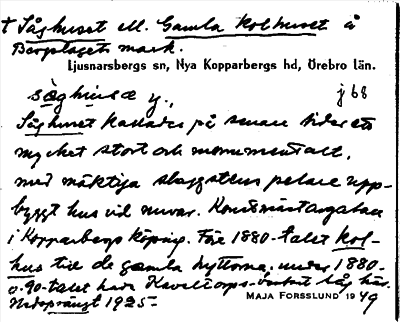 † Såghuset ell. Gamla kolhuset å
Bergslagets mark.
Ljusnarsbergs sn, Nya Kopparbergs hd, Örebro län.
såghusa y., j 68
Såghuset kallades på senare tider ett
mycket stort och monumentalt,
med mäktiga slaggstens pelare upp-
byggt hus vid nuvar. Konstmästaregatan
i Kopparbergs köping. Före 1880-talet kol-
hus till de gamla hyttorna, under 1880-
o. 90-talet hade såg här.
Nedsprängt 1925-
MAJA FORSSLUND 1949